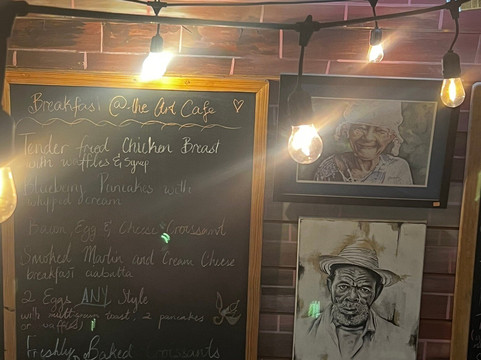 Breakfast @ the Art Cafe
Tender fried Chicken Breast
with waffles & Syrup
Blueberry Pancakes with
whipped cream
Bacon, Egg & Cheese Croissant
Smoked Marlin and Cream Cheese
breakfast ciabatta
2 Eggs ANY Style
with multigrain toast, 2 pancakes
or waffles)
Freshly Baked croissants